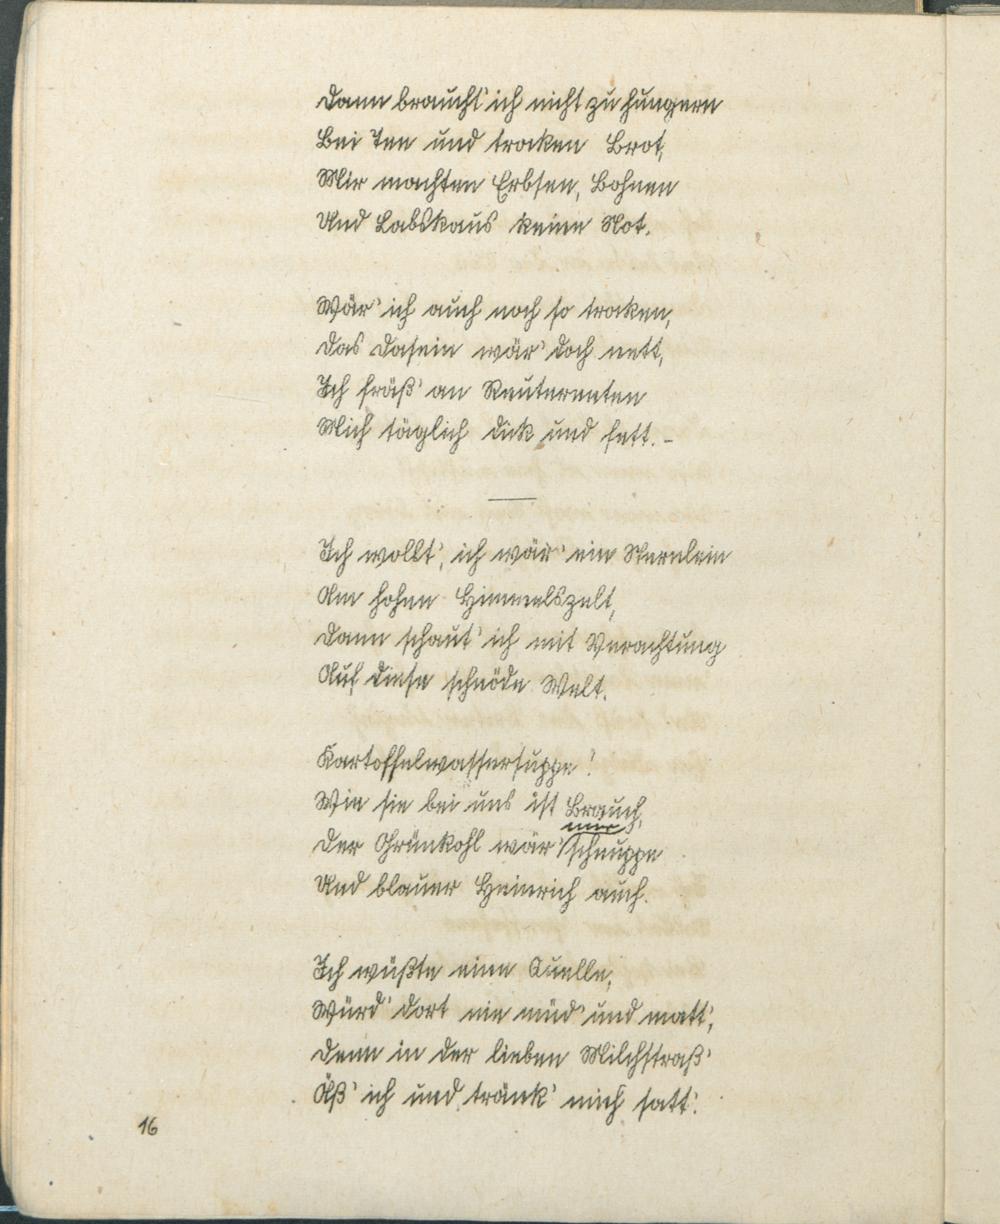 Dann braucht' ich nicht zu hungern
Bei Tee und trocken Brot,
Mir machten Erbsen, Bohnen
Und Labskaus keine Not.
Wär' ich auch noch so trocken,
Das Dasein wär' doch nett,
Ich fräß' an
Mich täglich dick und fett. –
Ich wollt', ich wär' ein Sternlein
Am hohen Himmelszelt,
Dann schaut' ich mit Verachtung
Auf diese schnöde Welt.
Kartoffelwassersuppe!
Wie sie bei uns ist Brauch,
Der Grünkohl wär' mir schnuppe
Und blauer Heinrich auch.
Ich wüßte eine Quelle,
Würd' dort nie müd' und matt',
Denn in der lieben Milchstraß'
Äß' ich und tränk' mich satt'.
16